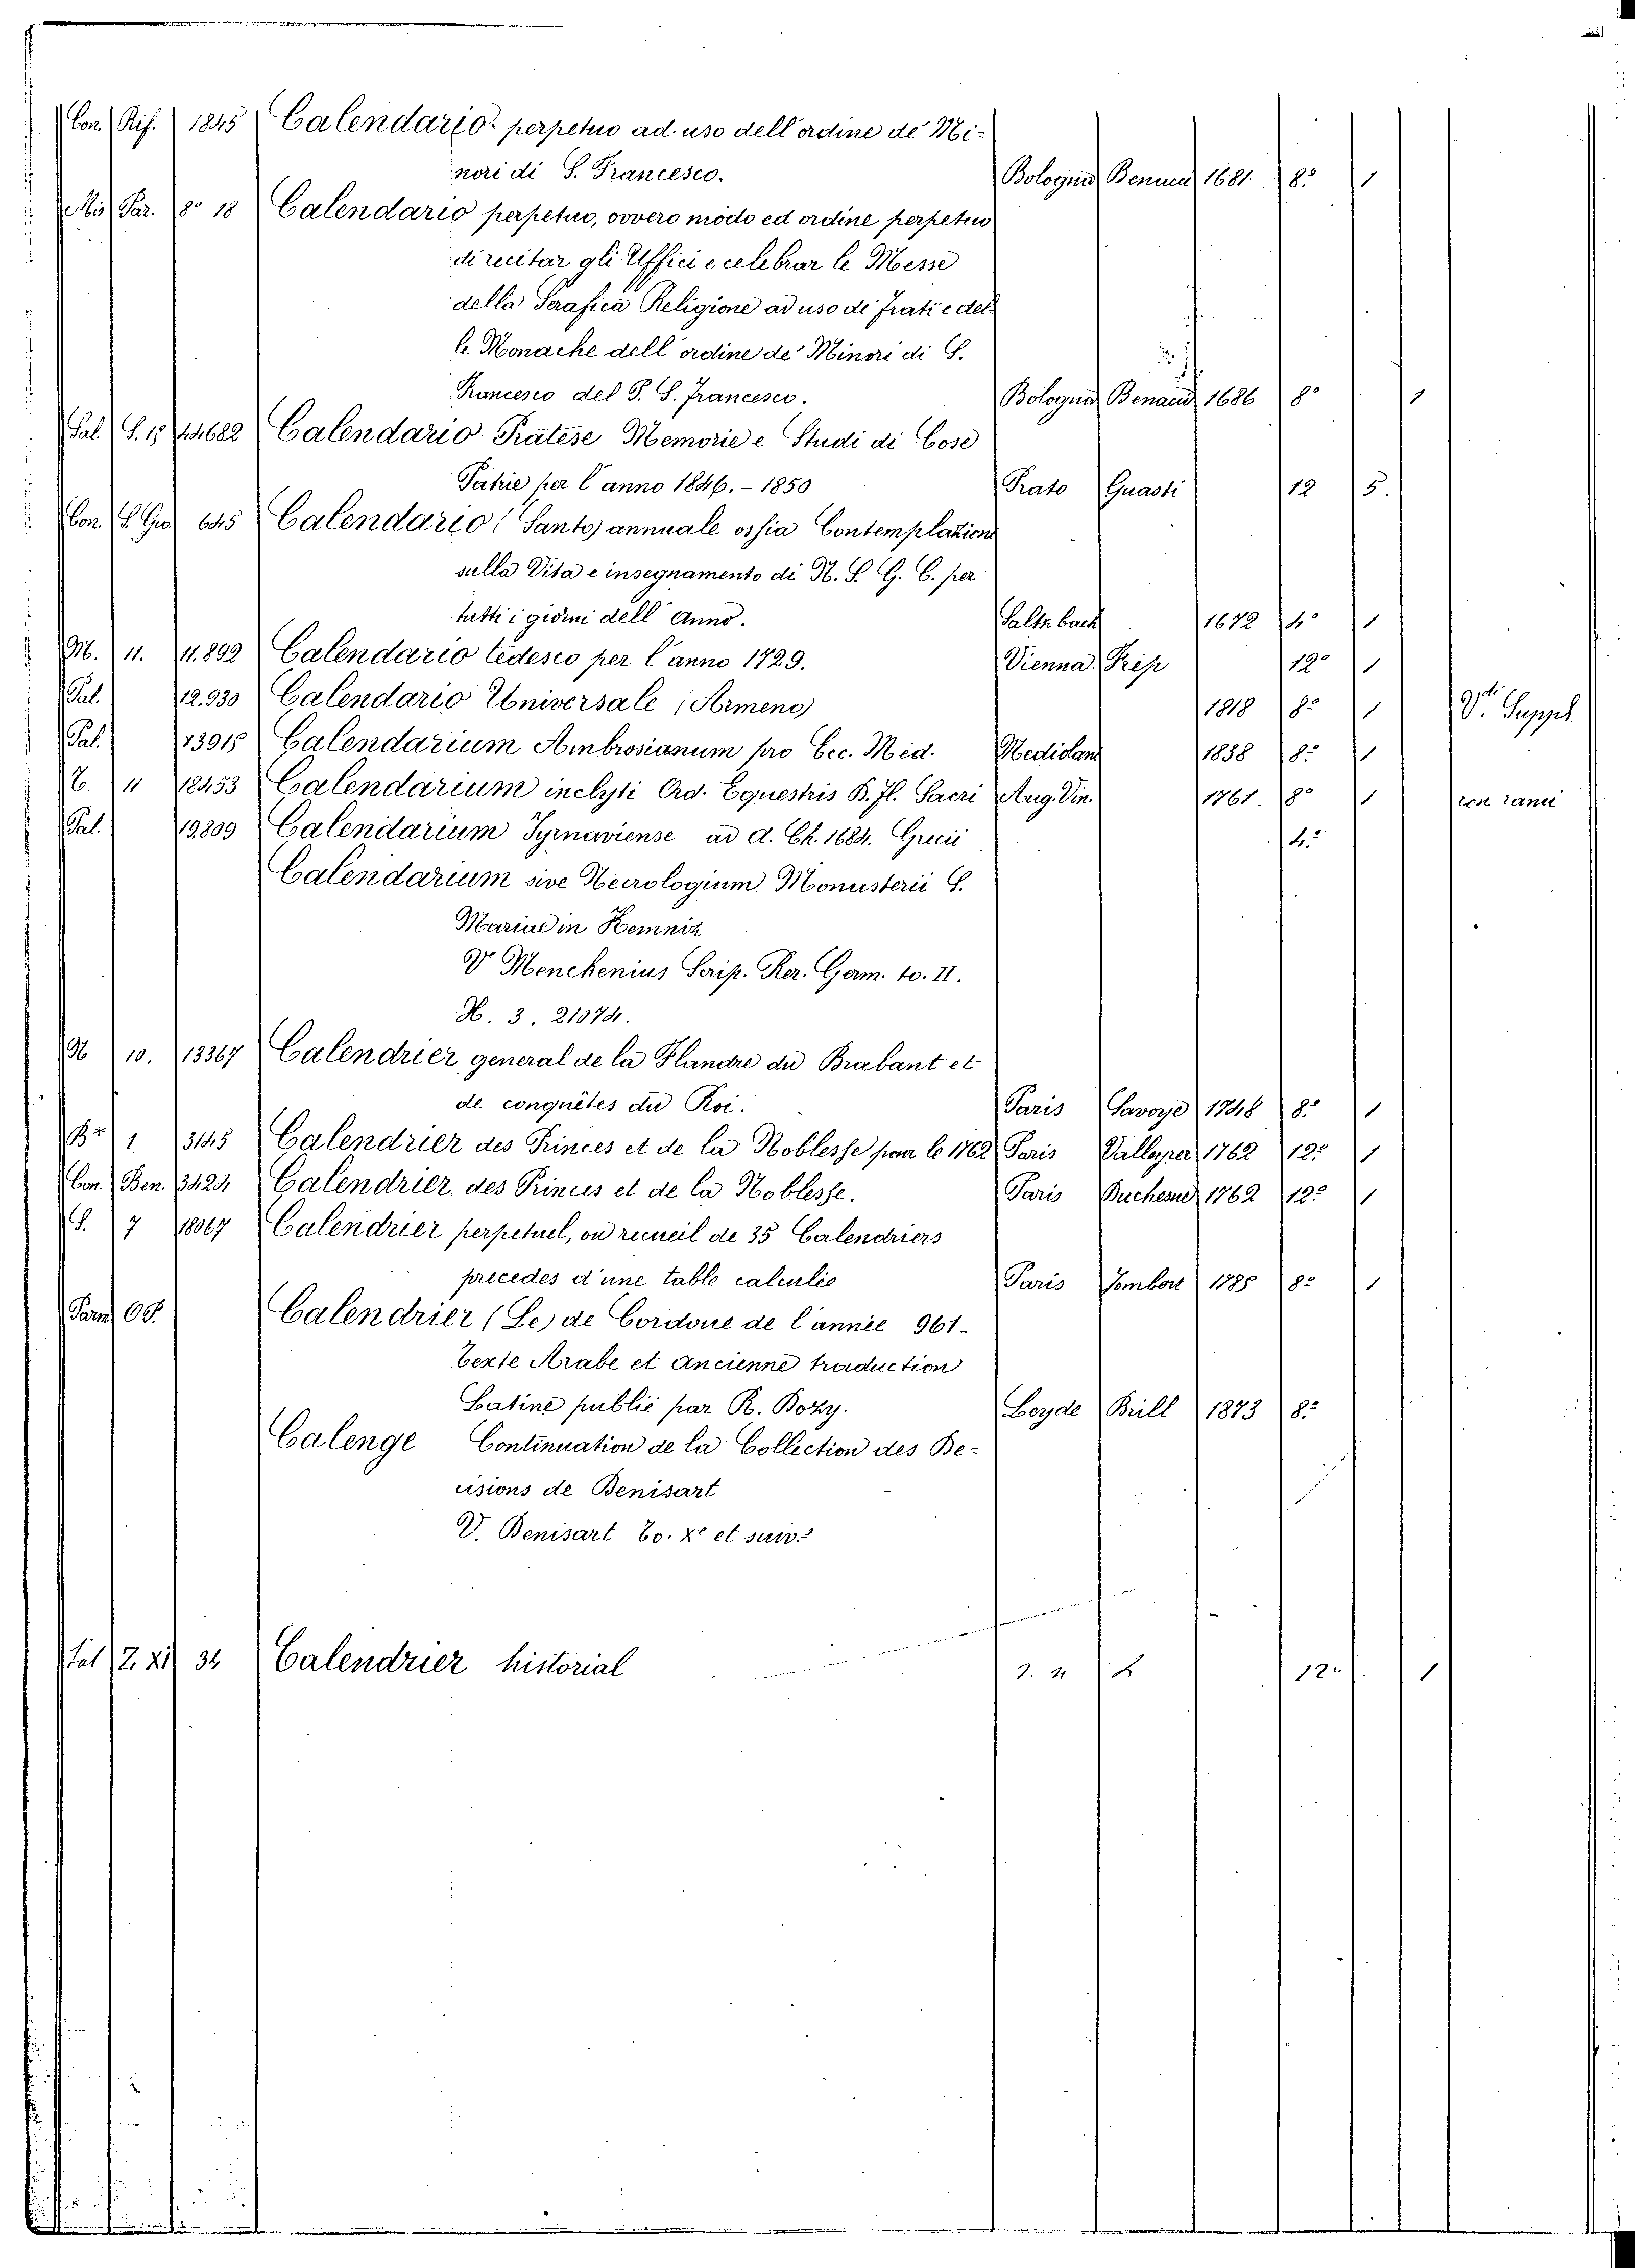 Con. Rif. 1845 Calendario perpetuo ad uso dell'ordine de' Mi-
nori di S. Francesco. Bologna Benacci 1681 8.° 1
Mis Par. 8° 18 Calendario perpetuo, ovvero modo ed ordine perpetuo
di recitar gli Uffici e celebrar le Messe
della Serafica Religione ad uso de' frati e del-
le Monache dell'ordine de' Minori di S.
Francesco del P. S. francesco. Bologna Benacci 1686 8° 1
Pal. S. 15 14682 Calendario Pratese Memorie e Studi di Cose
Patrie per l'anno 1846. - 1850 Prato Guasti 12 5.
Con. S. Gio 645 Calendario (Santo) annuale ossia Contemplazione
sulla Vita e insegnamento di N. S. G. C. per
tutti i giorni dell'anno. Saltzbach 1672 4° 1
M. 11. 11.892 Calendario tedesco per l'anno 1729. Vienna Prip 12° 1
Pal. 12.930 Calendario Universale (Armeno) 1818 8° 1 Suppl.
Pal. 13915 Calendarium Ambrosianum pro Ecc. Med. Mediolani 1838 8.° 1
C. 11 12453 Calendarium inclyti Ord. Equestris Sacri Aug. Vin. 1761. 8° 1
Pal. 19809 Calendarium Tyrnaviense ad A. Ch. 1684. Grecii 4.°
Calendarium sive Necrologium Monasterii S.
Mariae in Kemniz
V Menckenius Scrip. Rer. Germ. to. II.
H. 3. 21074.
N 10. 13367 Calendrier general de la Flandre du Brabant et
de conquêtes du Roi. Paris Savoye 1748 8.° 1
Br 1 3145 Calendrier des Princes et de la Noblesse pour le 1762 Paris Valleyrer 1762 12° 1
Con. Ben. 3424 Calendrier des Princes et de la Noblesse. Paris Duchesne 1762 12° 1
S. 7 18067 Calendrier perpetuel, ou recueil de 35 Calendriers
precedes d'une table calculée Paris Jombert 1785 8° 1
Calendrier (Le) de Cordoue de l'année 961-
texte Arabe et ancienne traduction
Latine publié par R. Dozy. Leyde Brill 1873 8.°
Calenge Continuation de la Collection des De-
cisions de Denisart
V. Denisart to. X° et suiv.
34 Calendrier historial 12° 1